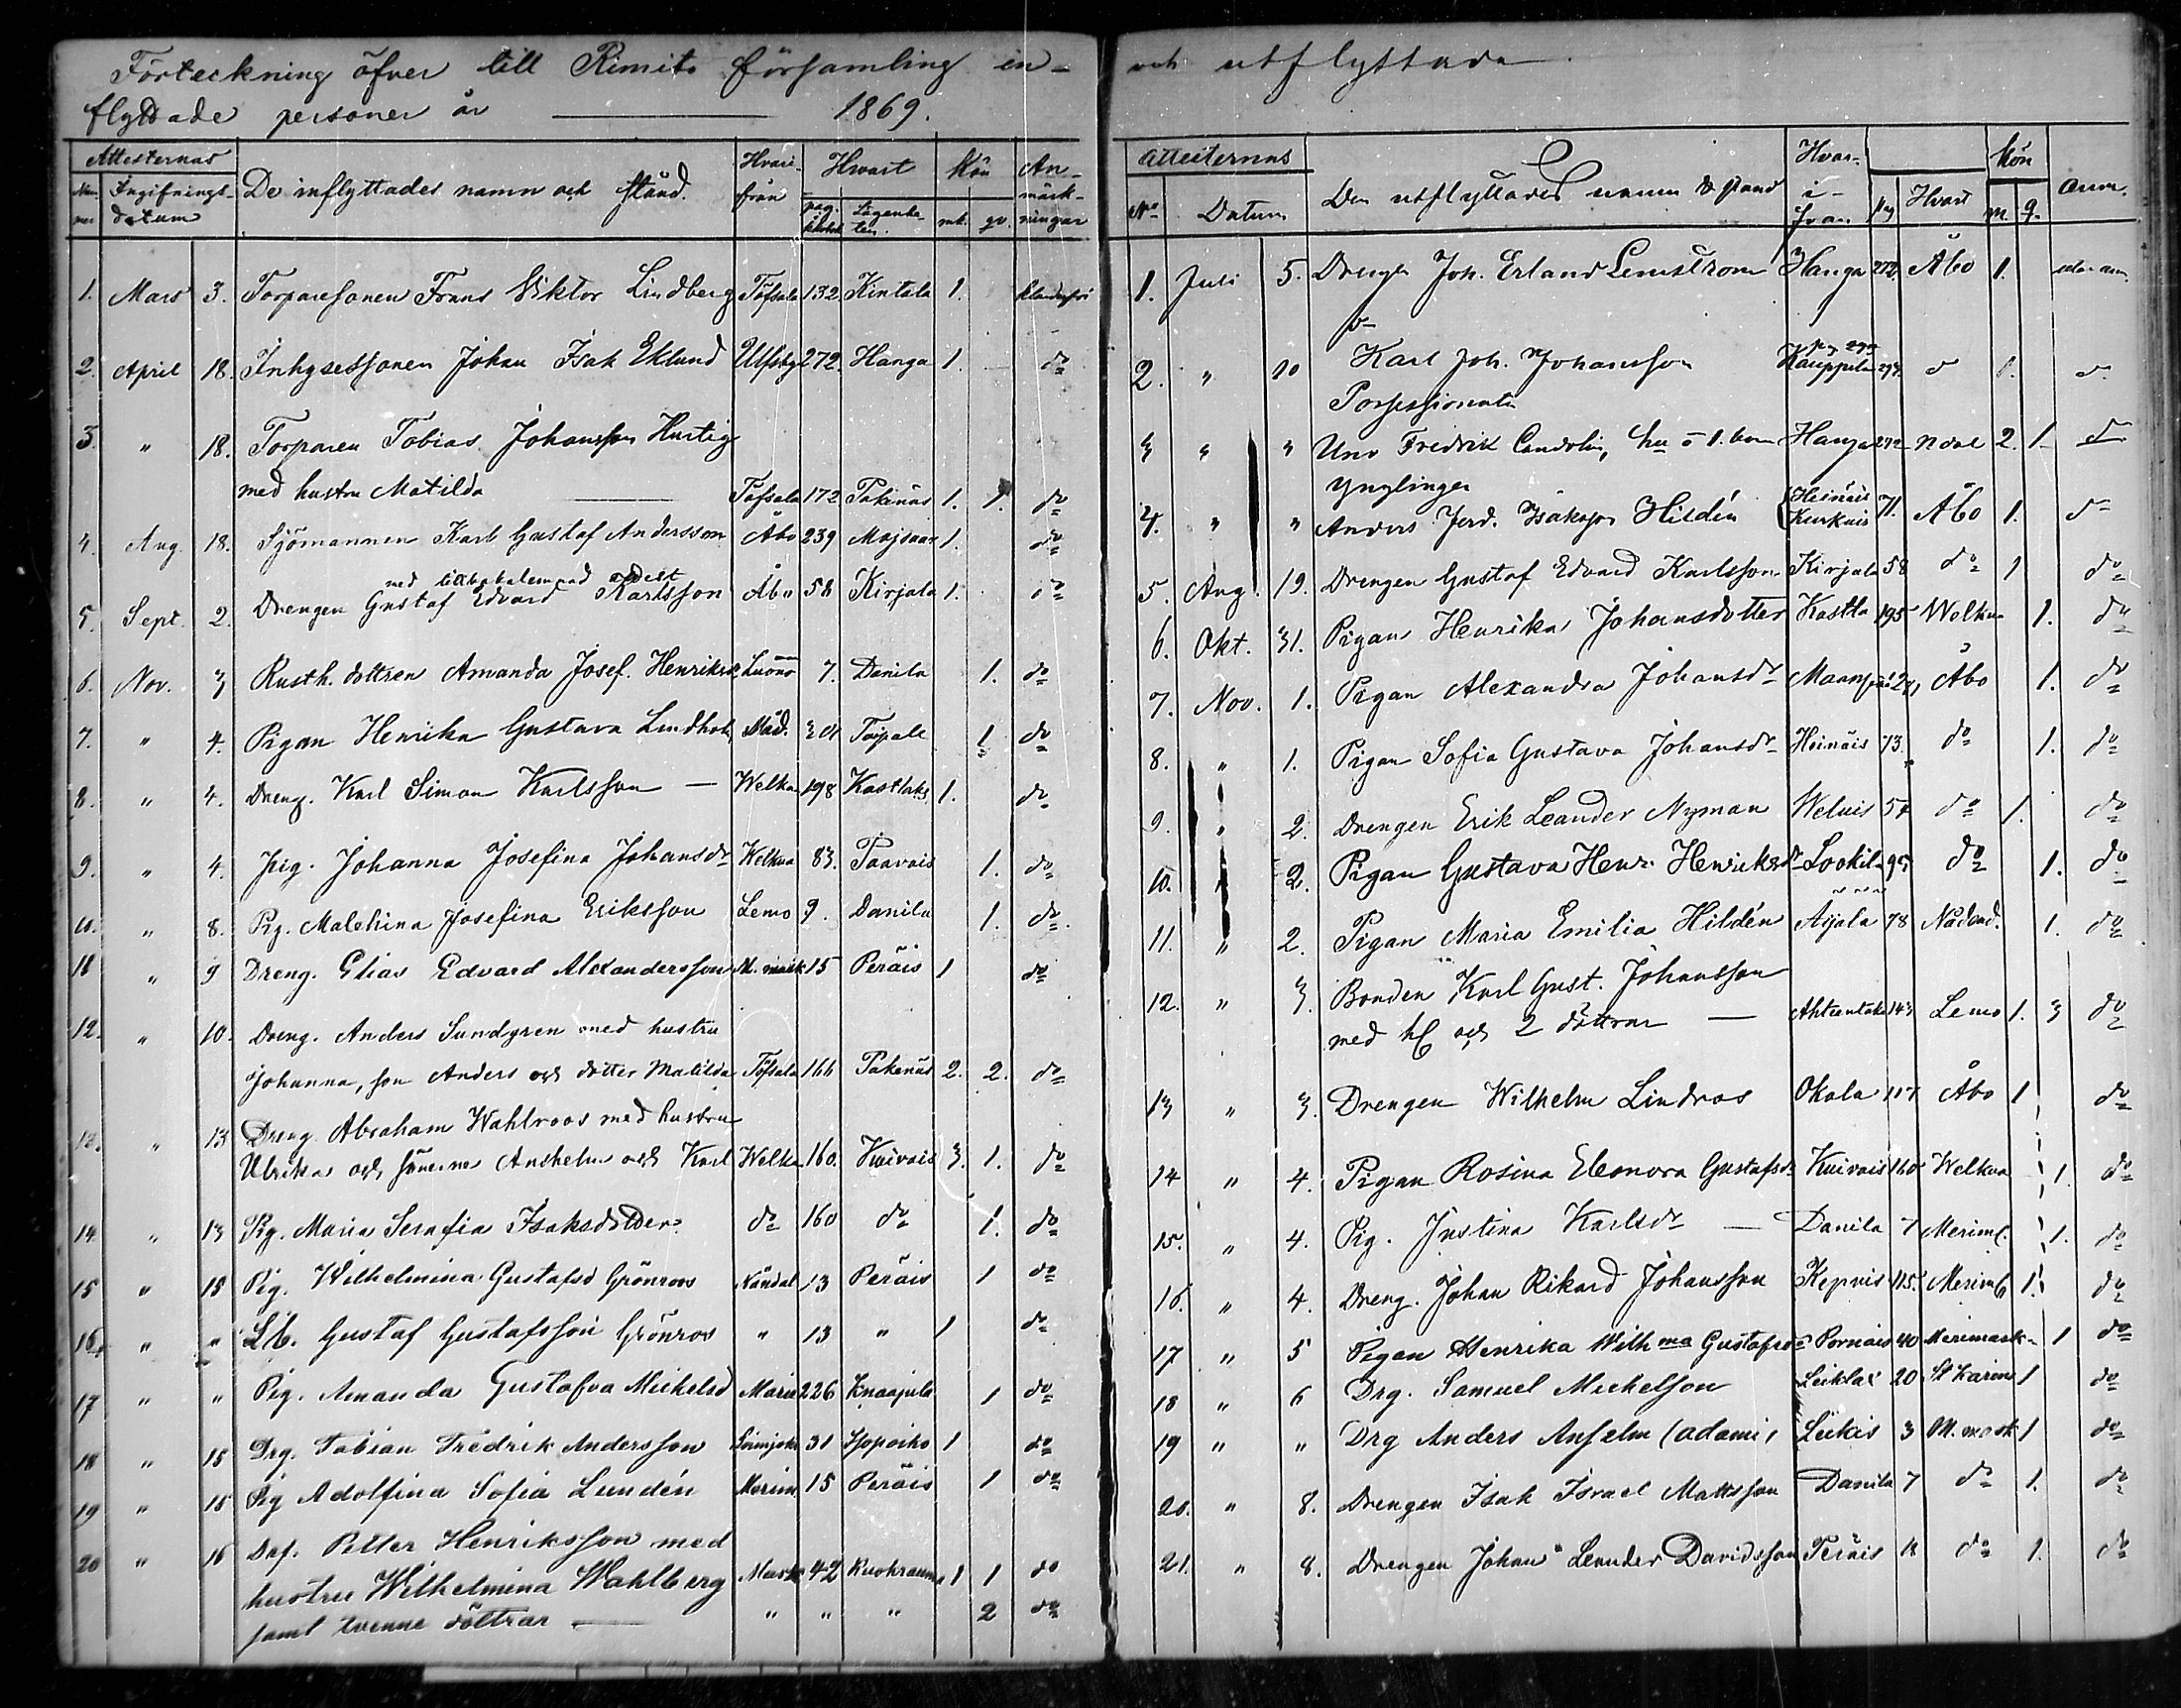 Förteckning öfver till Rimito församling in-
flyttade personer år 1869.
Attesternas De inflyttades namn och stånd. Hvari- Hvart Kön An-
Ingifnings- från märk-
datum pag. Lägenhe- mk. qv. ningar
ten.
1. Mars 3. Torparesonen Frans Viktor Lindberg Töfsala 132 Kintala 1.
2. April 18. Inhysessonen Johan Isak Eklund Ulfsby 272. Hanga 1. do
3. " 18. Torparen Tobias Johansson Hurtig
med hustru Matilda Töfsala 172 Pakinäs 1. 1. do
4. Aug. 18. Sjömannen Karl Gustaf Andersson Åbo 239 1. do
5. Sept. 2. Drengen Gustaf Edvard Karlsson Åbo 58 Kirjala 1. do
6. Nov. 3 Rusth. dottren Amanda Josef. Henriksd. 7. Danila 1. do
7. " 4. Pigan Henrika Gustava Lindholm Nåd. 301 Taipale 1 do
8. " 4. Dreng. Karl Simon Karlsson — Welkua 198 1. do
9. " 4. Pig. Johanna Josefina Johansdr Welkua 83. Paavais 1. do
10. " 8. Pig. Malehina Josefina Eriksson Lemo 9. Danila 1. do
11 " 9 Dreng. Elias Edvard Alexandersson M. mask 15 Peräis 1 do
12. " 10. Dreng. Anders Sundgren med hustru
Johanna, son Anders och dotter Matilda Töfsala 166 Pakinäs 2. 2. do
13. " 13 Dreng Abraham Wahlroos med hustru
Ulrika och sönerne Anshelm och Karl Welkua 160. Kuivais 3. 1. do
14 " 13 Pig. Maria Serafia Isaksdotter do 160 do 1. do
15 " 15 Pig. Wilhelmina Gustafsd Grönroos Nåndal 13 Peräis 1 do
16. " " Gustaf Gustafsson Grönros " 13 " 1 do
17 " " Pig. Amanda Gustafva Michelsd Marie 226 Knaapila 1 do
18 " 15 Drg. Fabian Fredrik Andersson 31 1 do
19 " 15 Pig Adolfina Sofia Lundén Merim. 15 Peräis 1 do
20 " 16 Petter Henriksson med
hustru Wilhelmina Wahlberg Mask 42 1 1 do
samt tvenne döttrar — " " " 2 do
och utflyttade.
Attesternas Den utflyttades namn & stånd Hvar- Pag Hvart Kön Anm.
No Datum i- m. q.
från
1. Juli 5. Drengen Joh. Erland Lemström Hanga 272. Åbo 1. utan anm.
2. " 10 Karl Joh. Johansson Kauppila 297. d 1. do
Possessionaten
3 " " Uno Fredrik Candolin, hu o 1. barn Hanga 272 Ndal 2. 1 do
Ynglingen
4. " " Anders Ferd. Isaksson Hildén Heinäis 71. Åbo 1. do
5. Aug. 19. Drengen Gustaf Edvard Karlsson Kirjala 58 do 1 do
6. Okt. 31. Pigan Henrika Johansdotter 195 Welkua 1. do
7. Nov. 1. Pigan Alexandra Johansdr Maanpää Åbo 1. do
8. " 1. Pigan Sofia Gustava Johansdr Heinäis 73. do 1. do
9. " 2. Drengen Erik Leander Nyman Weluis 57 do 1. do
10. " 2. Pigan Gustava Henr. Henriksdr Lookila 95 do 1. do
11. " 2. Pigan Maria Emilia Hildén Aijala 78 Nådend. 1. do
12. " 3. Bonden Karl Gust. Johansson
med h och 2 döttrar — 143 Lemo 1. 3 do
13 " 3. Drengen Wilhelm Lindros Okala 117 Åbo 1 do
14 " 4. Pigan Rosina Eleonora Gustafsdr Kuivais 160 Welkua 1. do
15. " 4. Pig. Justina Karlsdr — Danila 7 Merim. 1. do
16. " 4. Dreng. Johan Rikard Johansson 115. Merim 1. do
17 " 5 Pigan Henrika Wilhma Gustafsdr Pornais 40 Merimask 1 do
18 " 6 Drg. Samuel Michelson Leiklax 20 St Karins 1 do
19 " " Drg Anders Anselm (adami) 3 M. mask 1 do
20. " 8. Drengen Isak Israel Mattsson Danila 7 do 1. do
21. " 8. Drengen Johan Leander Davidsson Peräis do 1. do